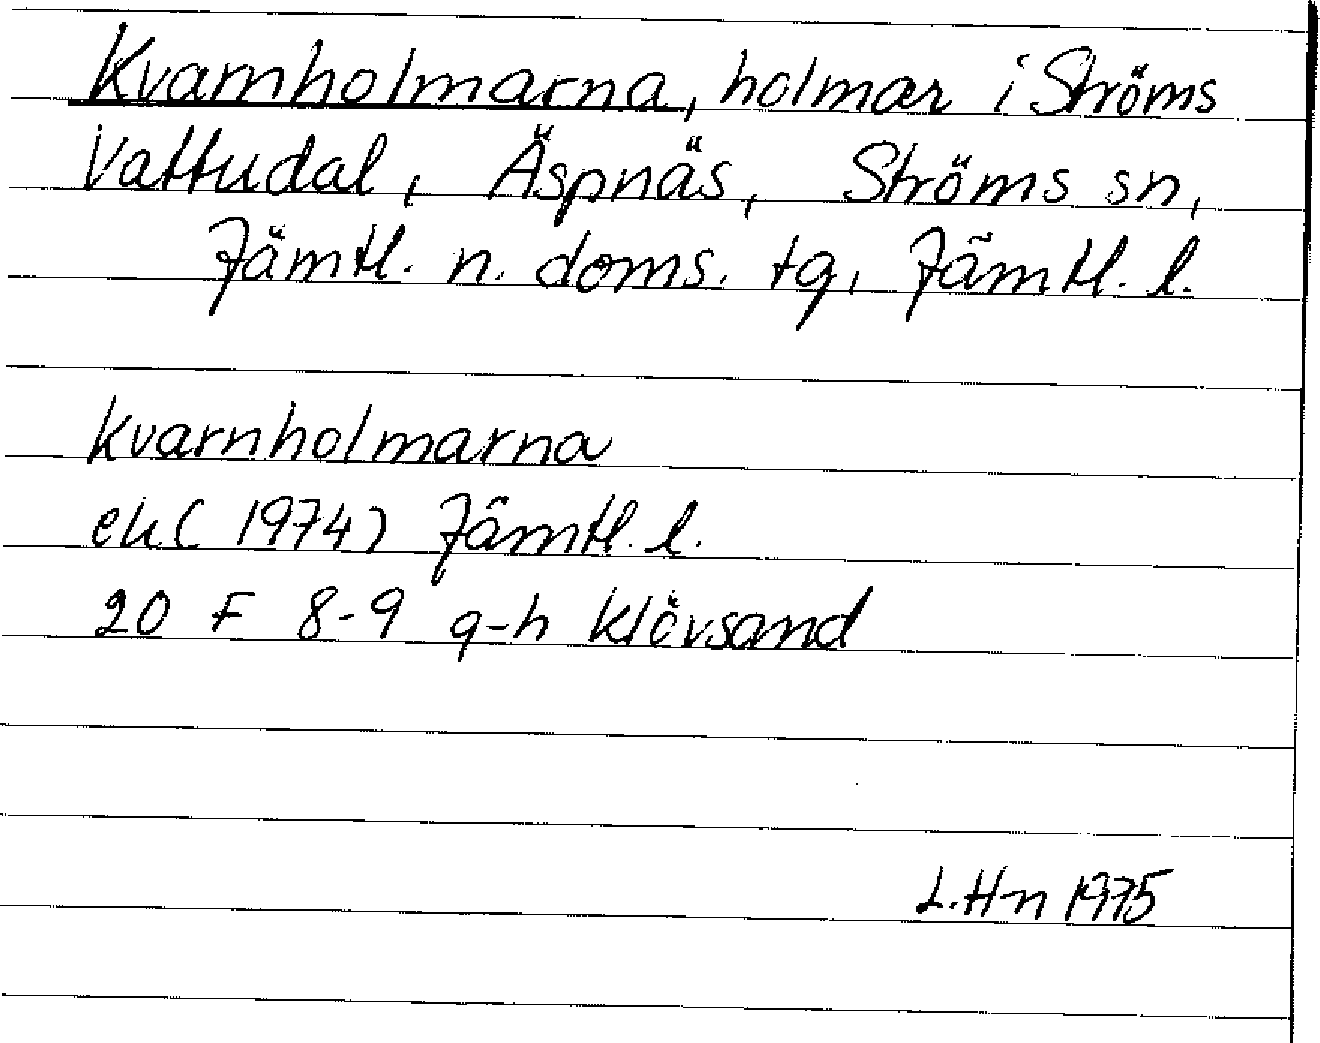 Kvarnholmarna, holmar i Ströms
Vattudal, Äspnäs, Ströms sn,
Jämtl. n. doms. tg, Jämtl. l.
Kvarnholmarna
ek (1974) Jämtl. l.
20 F 8-9 g-h Klövsand
L.Hn 1975